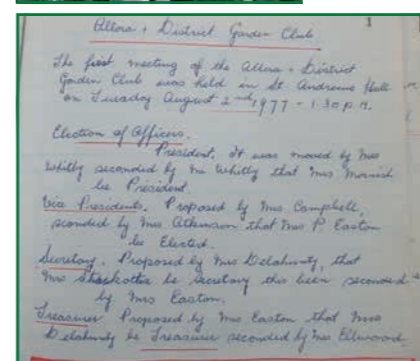 1
Allora + District Garden Club
The first meeting of the Allora + District
Garden Club was held in St Andrews Hall
on Tuesday August 2nd, 1977 - 1.30 p.m.
Election of Officers.
President. It was moved by Mrs
Whitly seconded by Mr Whitly that Mrs
be President.
Vice Presidents. Proposed by Mrs Campbell,
sconded by Mrs Atkinson that Mrs P Easton
be Elected.
Secretary. Proposed by Mrs Delahunty, that
Mrs be Secretary this been seconded
by Mrs Easton.
Treasurer Proposed by Mrs Easton that Mrs
Delahunty be Treasurer seconded by Mrs Ellwood